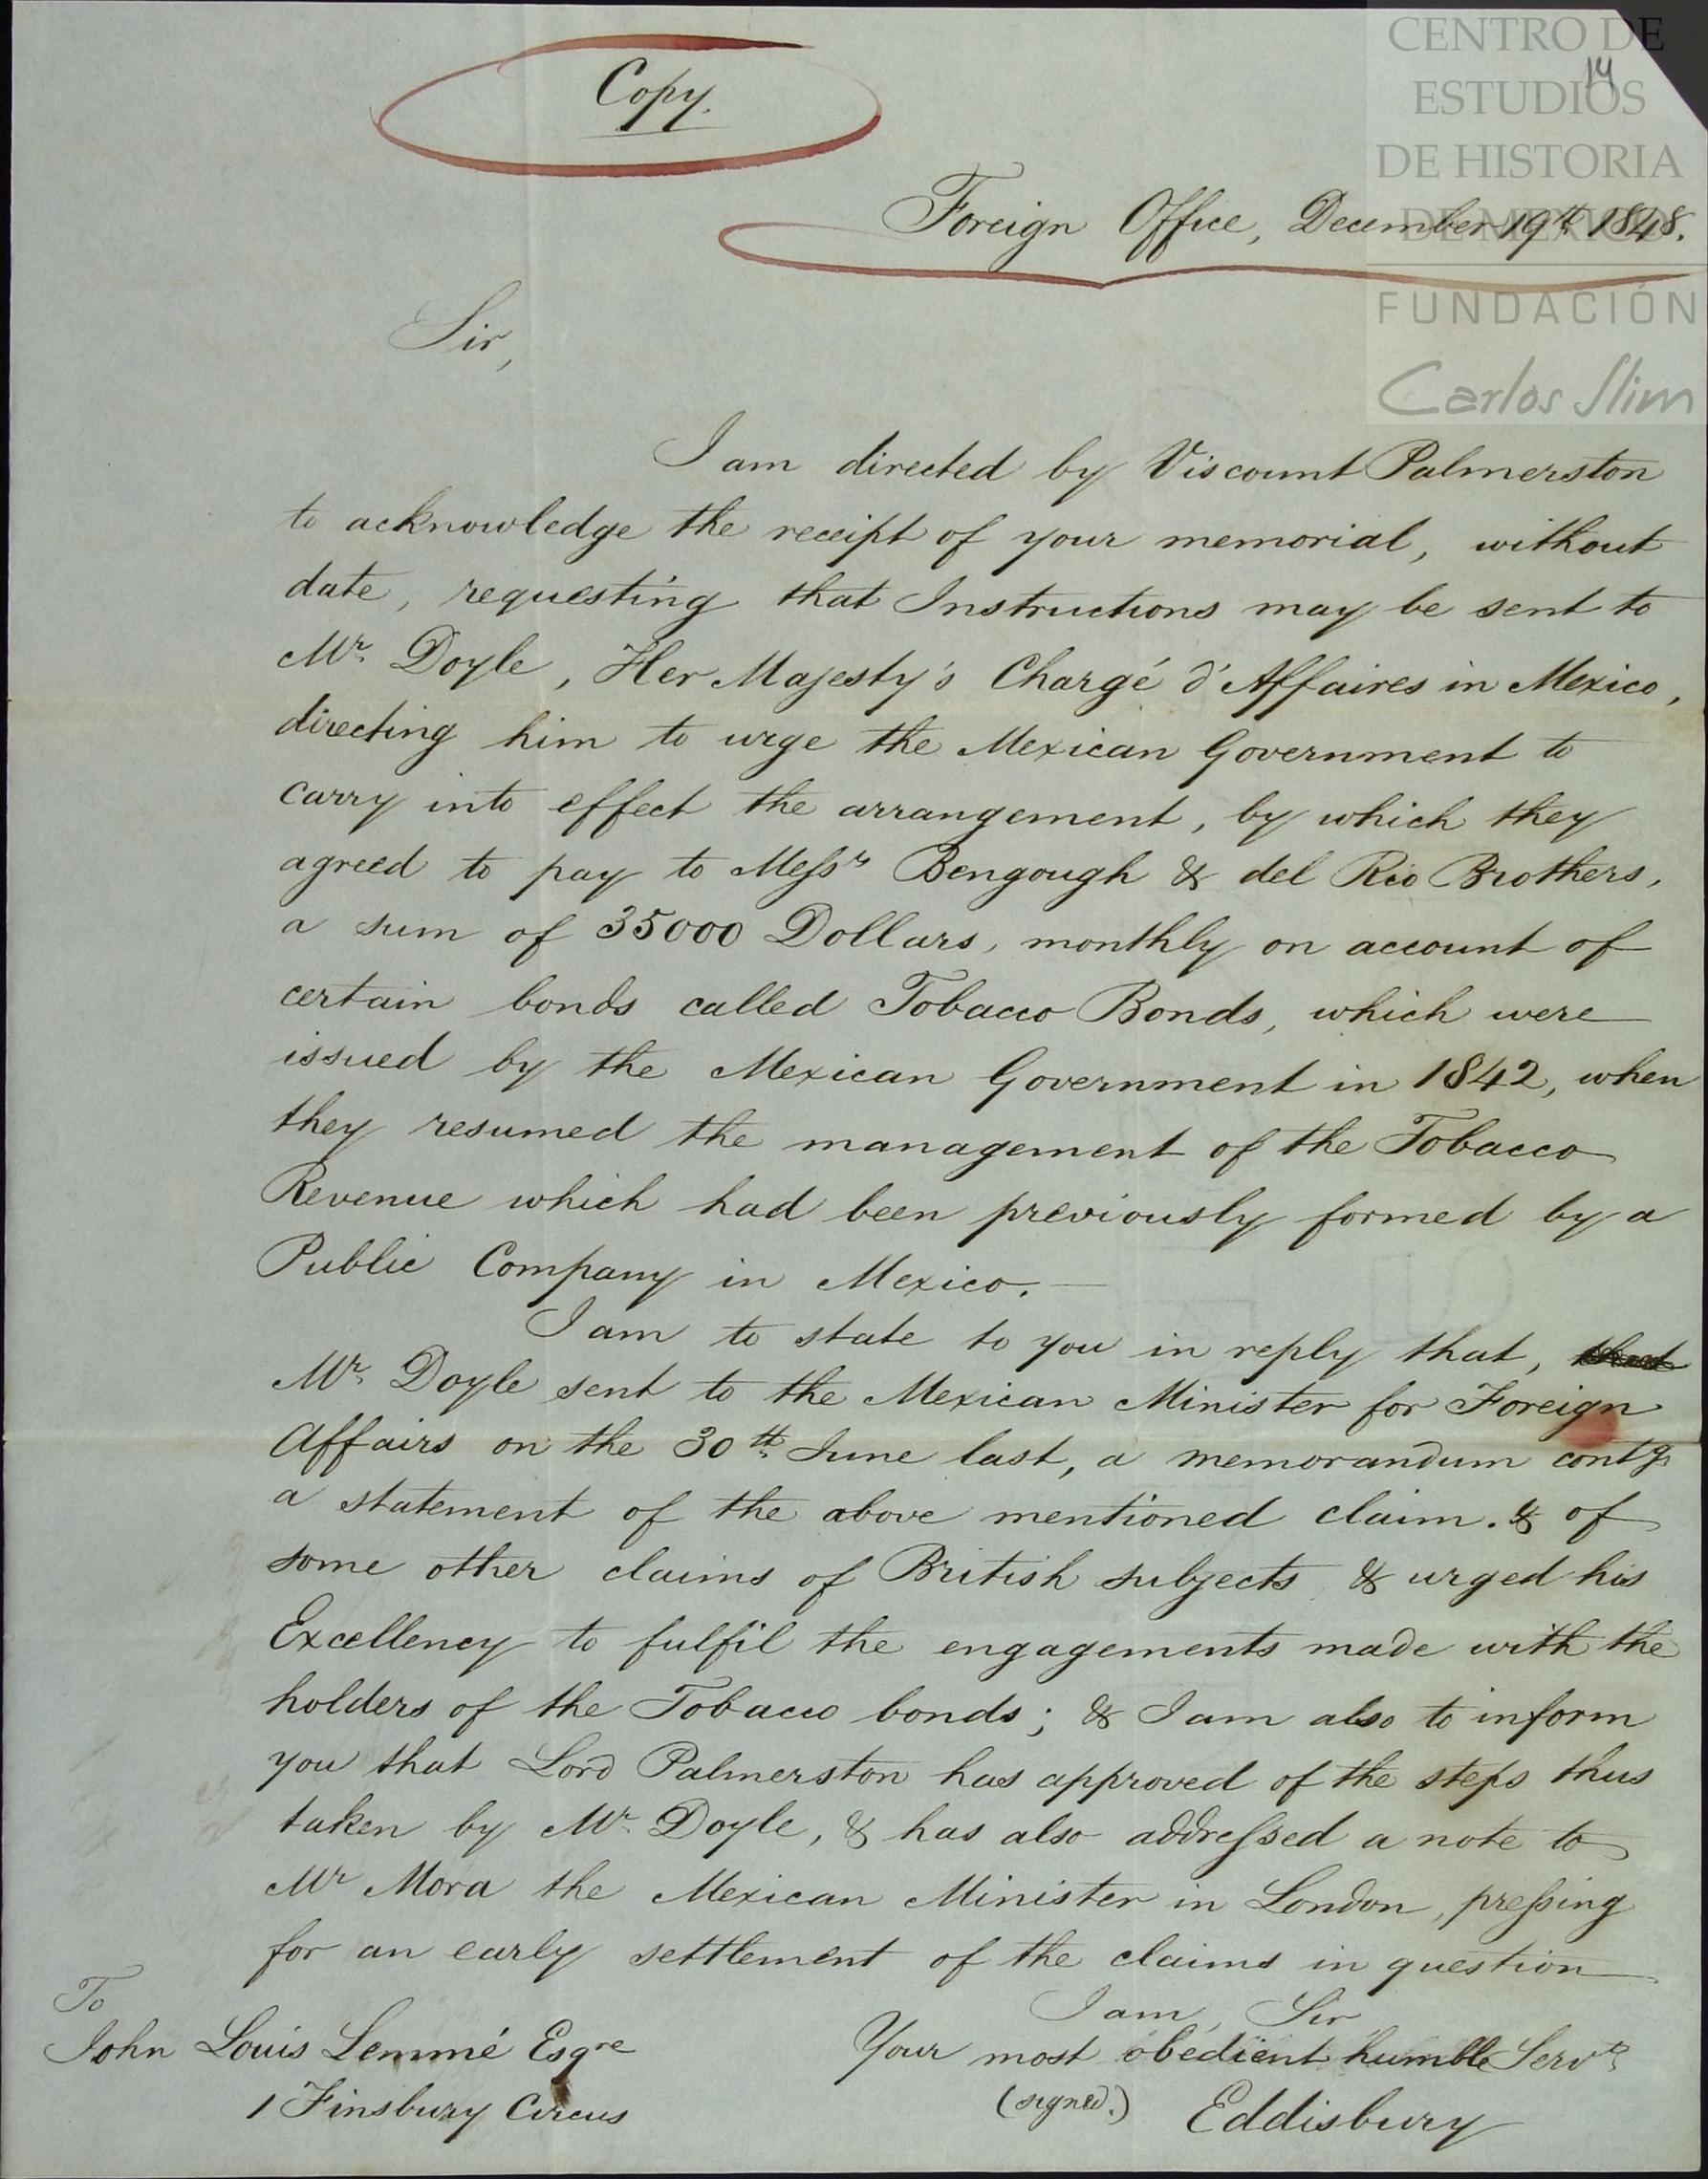 Copy.
14
Foreign Office, December 19th 1848.
Sir,
I am directed by Viscount Palmerston
to acknowledge the receipt of your memorial, without
date, requesting that Instructions may be sent to
Mr. Doyle, Her Majesty's Chargé d'Affaires in Mexico,
directing him to urge the Mexican Government to
carry into effect the arrangement, by which they
agreed to pay to Messrs Bengough & del Rio Brothers,
a sum of 35000 Dollars, monthly on account of
certain bonds called Tobacco Bonds, which were
issued by the Mexican Government in 1842, when
they resumed the management of the Tobacco
Revenue which had been previously formed by a
Public Company in Mexico.—
I am to state to you in reply that, that
Mr. Doyle sent to the Mexican Minister for Foreign
Affairs on the 30th. June last, a memorandum contg
a statement of the above mentioned claim. & of
some other claims of British subjects & urged his
Excellency to fulfil the engagements made with the
holders of the Tobacco bonds; & I am also to inform
you that Lord Palmerston has approved of the steps thus
taken by Mr. Doyle, & has also addressed a note to
Mr Mora the Mexican Minister in London, pressing
for an early settlement of the claims in question
I am, Sir
Your most obedient humble Servt
(signed.) Eddisbury
To
John Louis Lemmé Esqre
1 Finsbury Circus
CENTRO DE
ESTUDIOS
DE HISTORIA
DE MEXICO
FUNDACIÓN
Carlos Slim